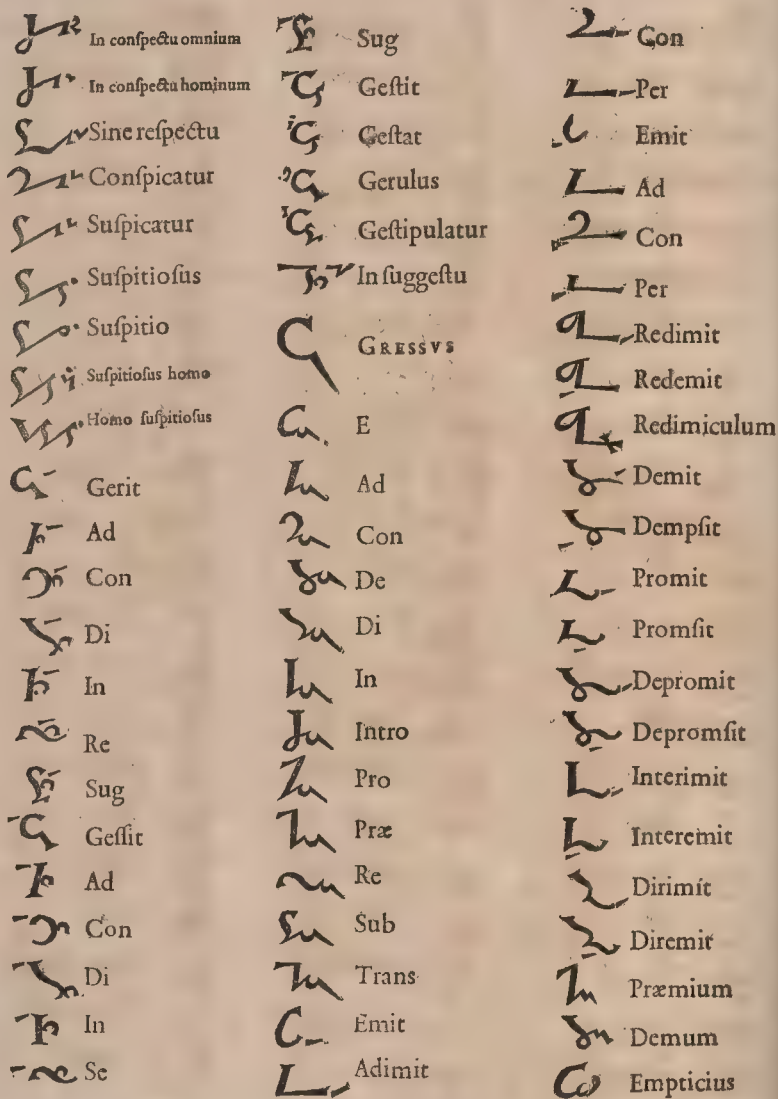 In conſpectu omnium
In conſpectu hominum
Sine reſpectu
Conſpicatur
Suſpicatur
Suſpitioſus
Suſpitio
Suſpitioſus homo
Homo ſuſpitioſus
Gerit
Ad
Con
Di
In
Re
Sug
Geſſit
Ad
Con
Di
In
Se
Sug
Geſtit
Geſtat
Gerulus
Geſtipulatur
In ſuggeſtu
GRESSVS
E
Ad
Con
De
Di
In
Intro
Pro
Præ
Re
Sub
Trans
Emit
Adimit
Con
Per
Emit
Ad
Con
Per
Redimit
Redemit
Redimiculum
Demit
Dempſit
Promit
Promſit
Depromit
Depromſit
Interimit
Interemit
Dirimit
Diremit
Præmium
Demum
Empticius